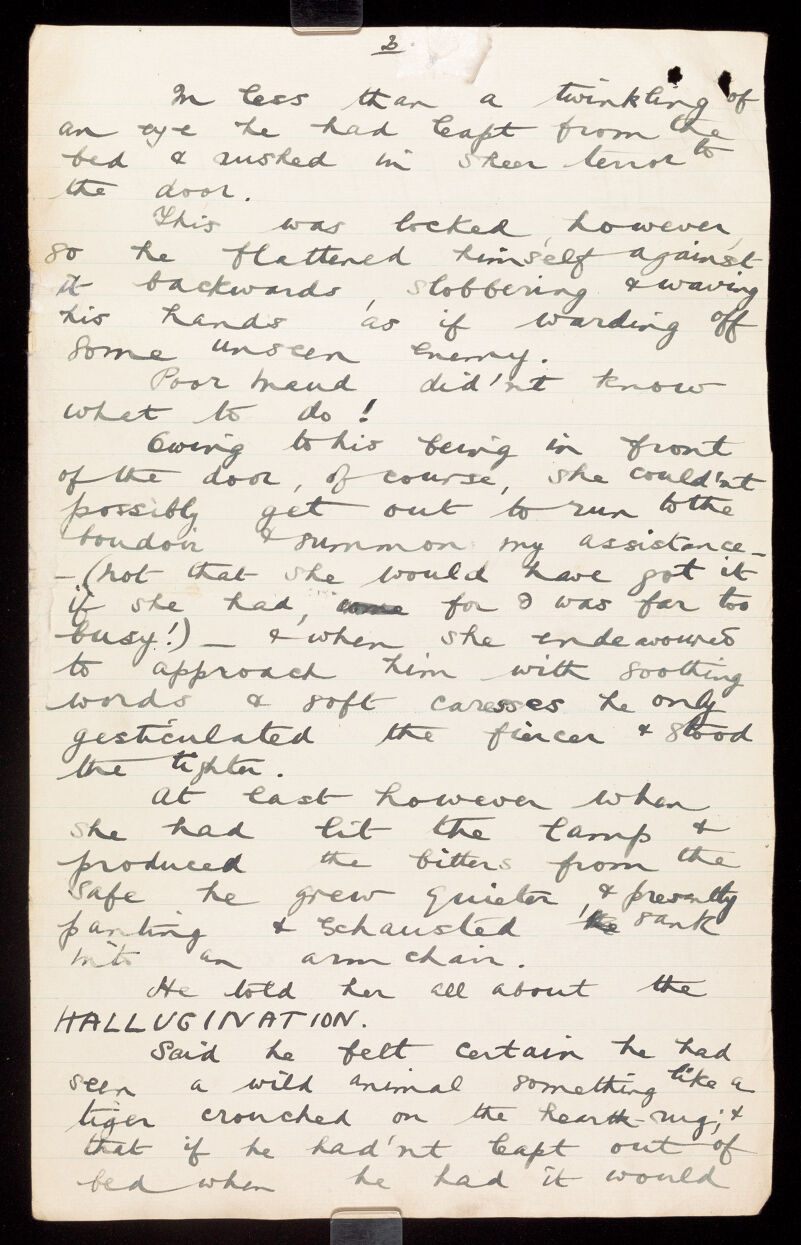 2.
In less than a twinkling of
an eye he had leapt from the
bed & rushed in sheer terror to
the door.
This was locked, however,
so he flattened himself against
it backwards, slobbering & waving
his hands as if warding off
some unseen enemy.
Poor Maud did'nt know
what to do!
Owing to his being in front
of the door, of course, she could'nt
possibly get out to run to the
boudoir & summon my assistance –
– (not that she would have got it
if she had, for I was far too
busy!) – & when she endeavoured
to approach him with soothing
words & soft caresses he only
gesticulated the fiercer & stood
the tighter.
At last however when
she had lit the lamp &
produced the bitters from the
safe he grew quieter, & presently
panting & exhausted sank
into an arm chair.
He told her all about the
HALLUGINATION.
Said he felt certain he had
seen a wild animal something like a
tiger crouched on the hearth-rug; &
that if he had'nt leapt out of
bed when he had it would